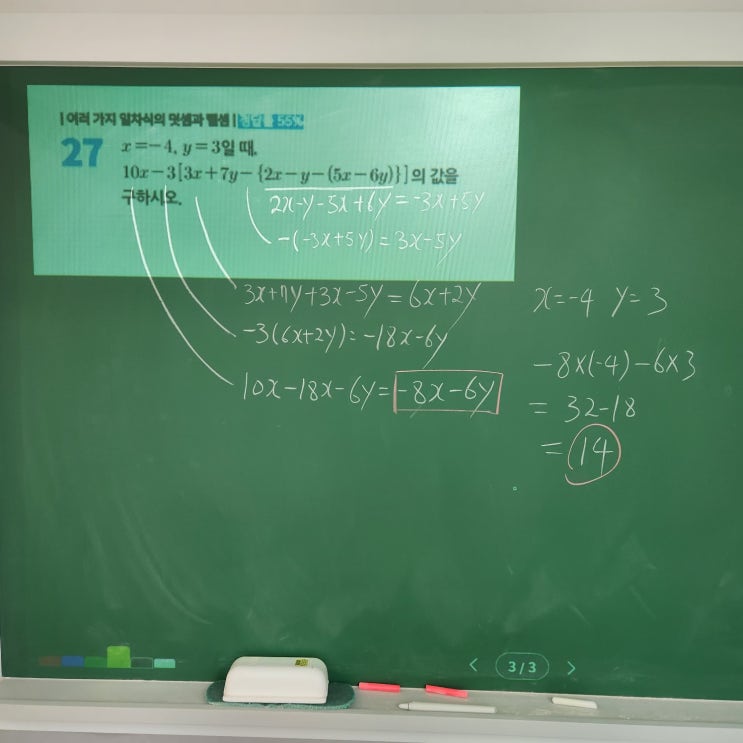 | 여러 가지 일차식의 덧셈과 뺄셈 | 정답률 55%
27 x=-4, y=3일 때,
10x-3[3x+7y-{2x-y-(5x-6y)}]의 값을
구하시오.
2x-y-5x+6y=-3x+5y
-(-3x+5y)=3x-5y
3x+7y+3x-5y=6x+2y
-3(6x+2y)=-18x-6y
10x-18x-6y=-8x-6y
x=-4 y=3
-8×(-4)-6×3
= 32-18
= 14
< 3/3 >